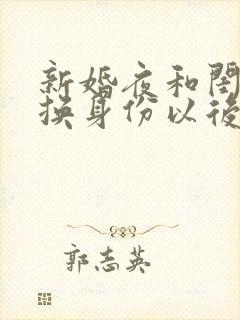 新婚夜和閨
換身份以後
郭志英